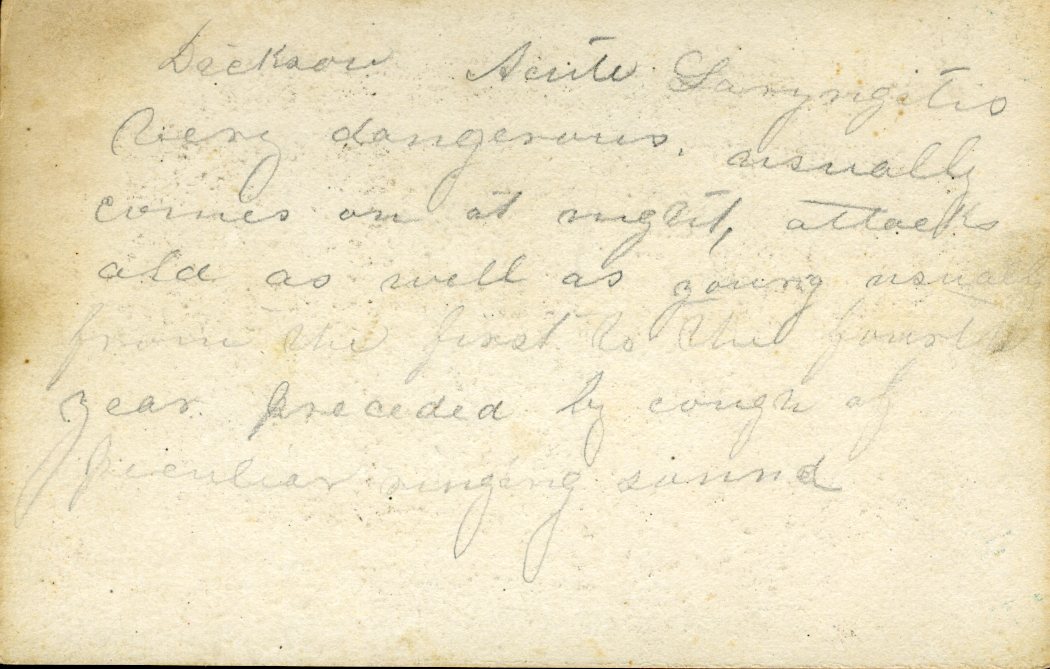 Dickson Acute Laryngitis
Very dangerous. usually
comes on at night, attacks
old as well as young usually
from the first to the fourth
year. preceded by cough of
peculiar ringing sound